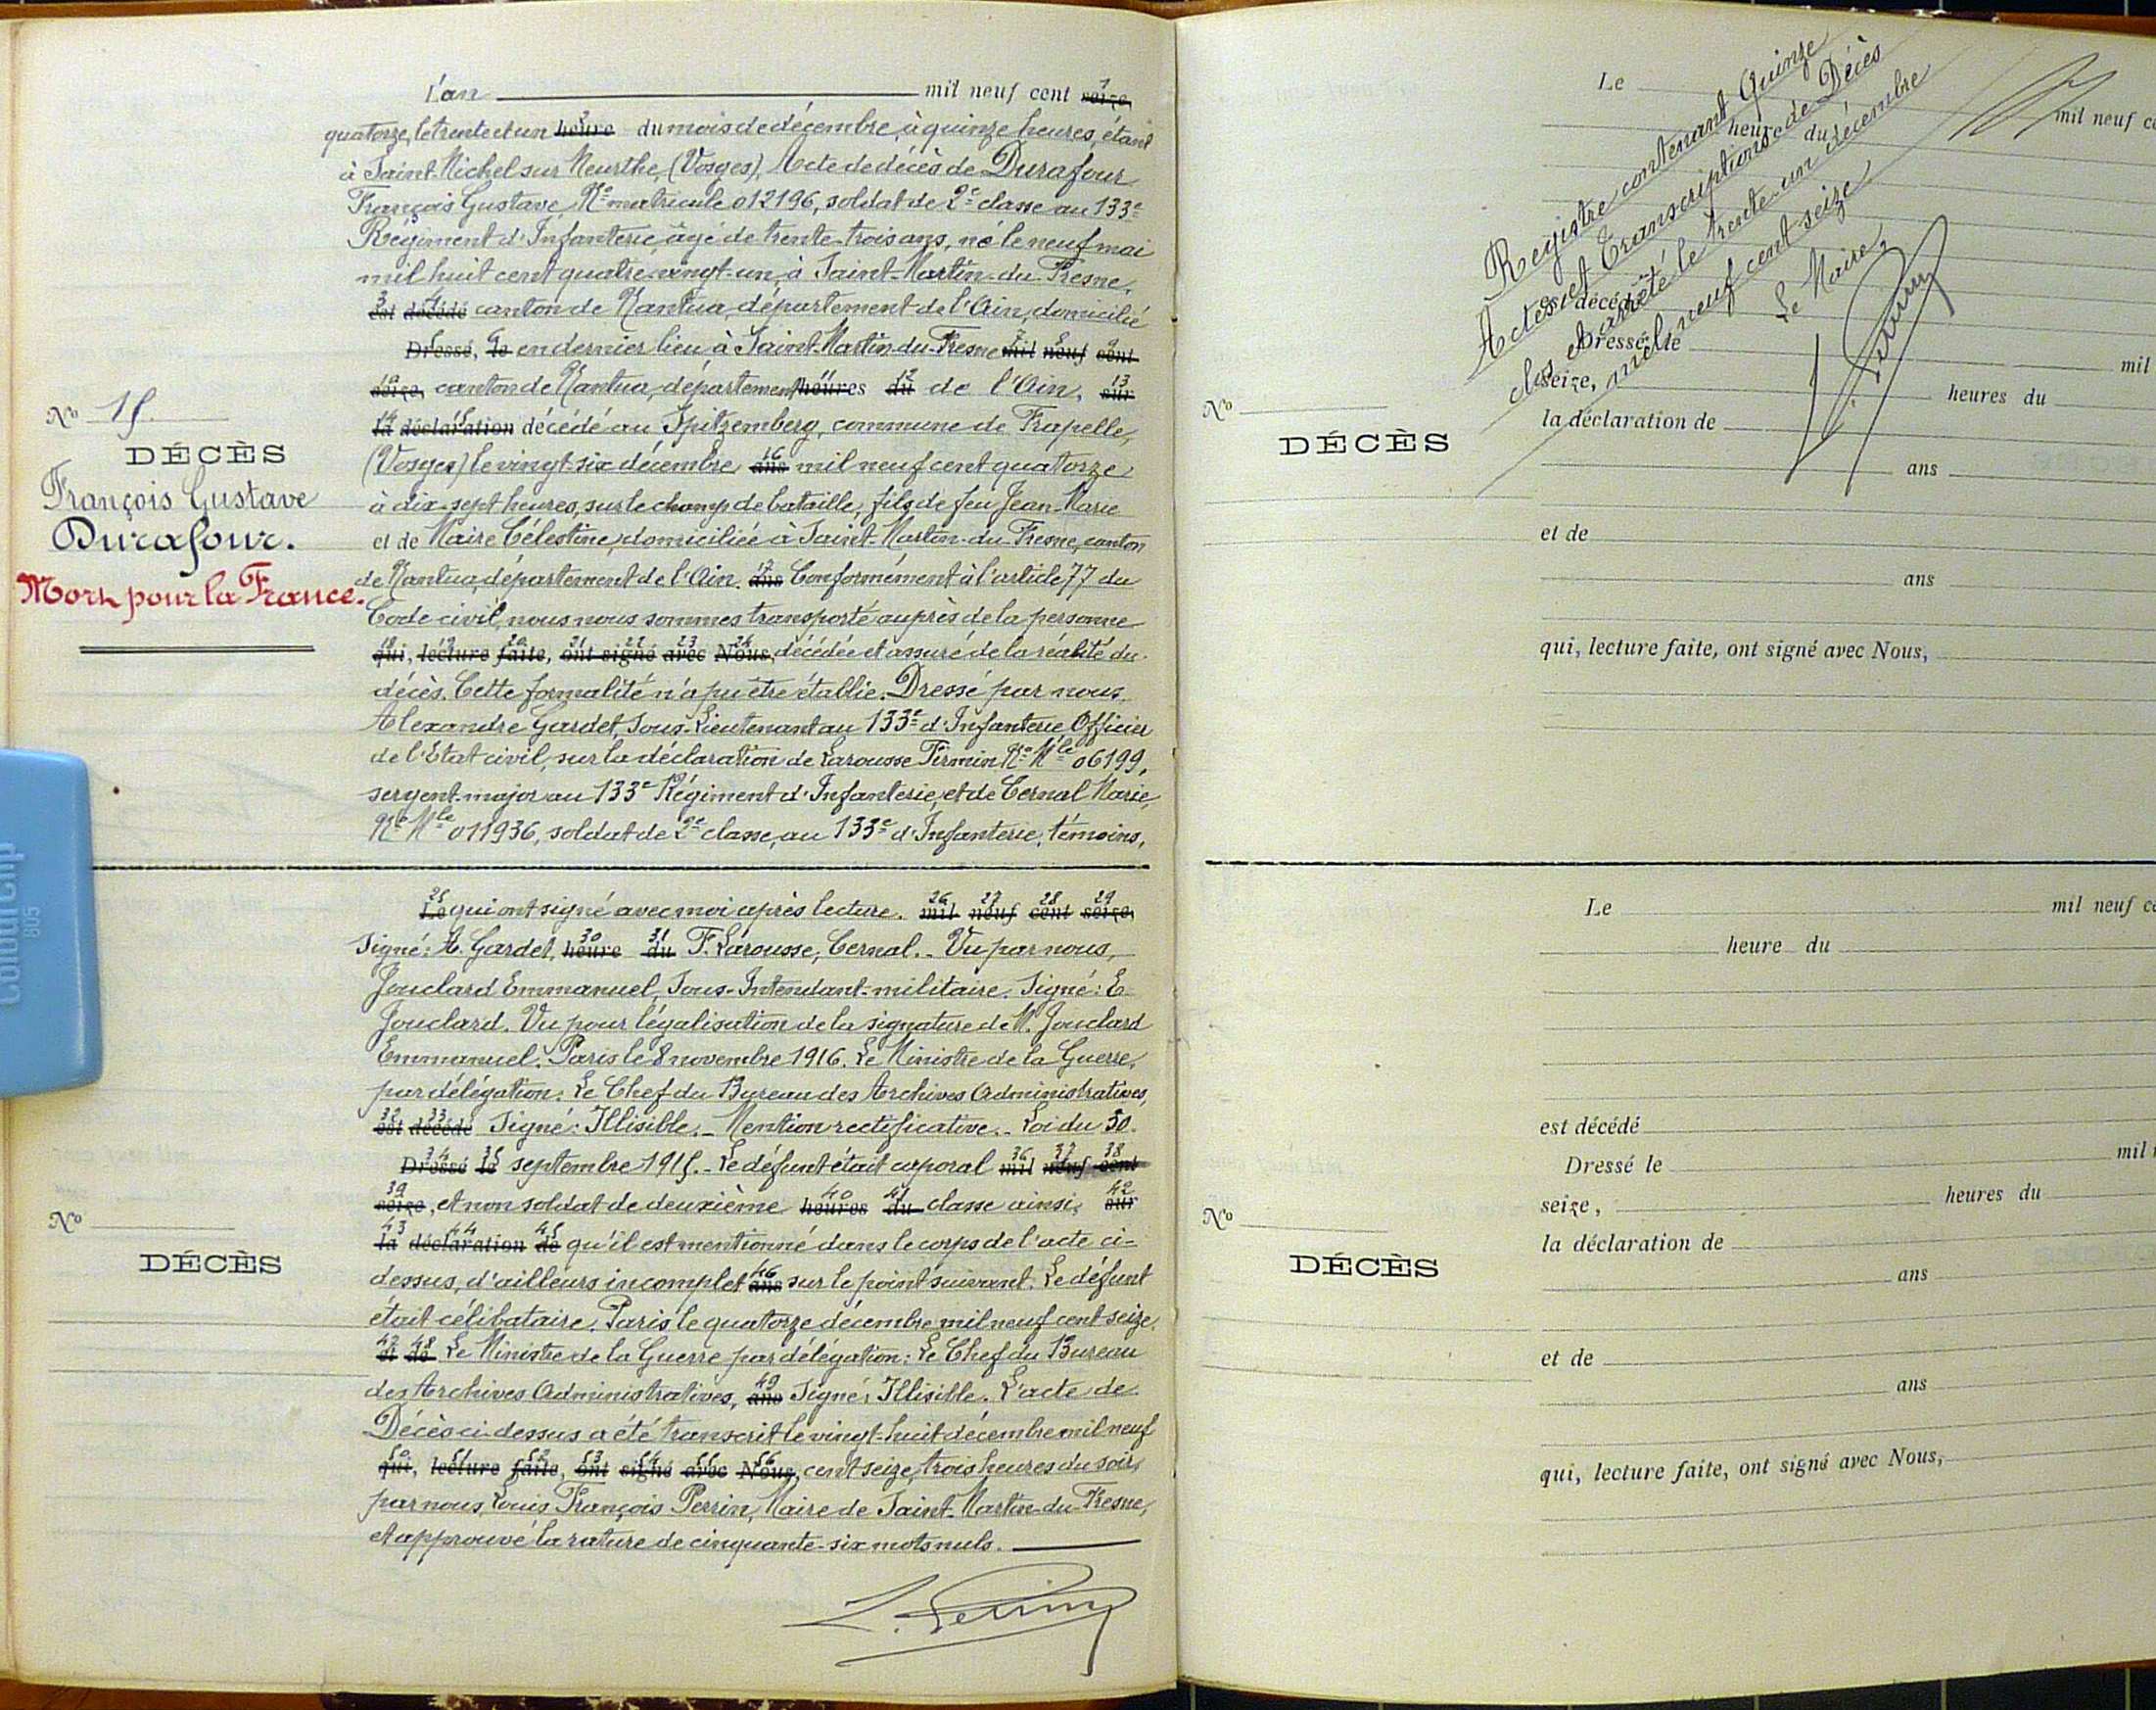 L'an mil neuf cent seize,
quatorze, le trente et un heure du mois de décembre, à quinze heures, étant
à Saint-Michel sur Meurthe, (Vosges), Acte de décès de Durafour
François Gustave, No matricule 012196, soldat de 2e classe au 133e
Régiment d'Infanterie, âgé de trente-trois ans, né le neuf mai
mil huit cent quatre-vingt-un, à Saint-Martin-du-Fresne,
est décédé canton de Nantua, département de l'Ain, domicilié
Dressé, le en dernier lieu à Saint-Martin-du-Fresne mil neuf cent
seize, canton de Nantua, département heures du de l'Ain, sur
la déclaration décédé au Spitzemberg, commune de Frapelle,
(Vosges) le vingt-six décembre ans mil neuf cent quatorze
à dix-sept heures, sur le champ de bataille, fils de feu Jean-Marie
et de Maire Célestine, domiciliée à Saint-Martin-du-Fresne, canton
de Nantua, département de l'Ain. ans Conformément à l'article 77 du
Code civil, nous nous sommes transporté auprès de la personne
qui, lecture faite, ont signé avec Nous, décédée et assuré de la réalité du
décès. Cette formalité n'a pu être établie. Dressé par nous,
Alexandre Gardet, Sous-Lieutenant au 133e d'Infanterie Officier
de l'Etat civil, sur la déclaration de Larousse Firmin No Mle 06199,
sergent-major au 133e Régiment d'Infanterie, et de Cernal Marie,
No Mle 011936, soldat de 2e classe, au 133e d'Infanterie, témoins,
No 15.
DÉCÈS
François Gustave
Durafour.
Mort pour la France.
Le qui ont signé avec moi après lecture. mil neuf cent seize,
Signé: A. Gardet, heure du F. Larousse, Cernal. - Vu par nous,
Jouclard Emmanuel, Sous-Intendant-militaire. Signé: E
Jouclard. Vu pour légalisation de la signature de M. Jouclard
Emmanuel. Paris le 8 novembre 1916. Le Ministre de la Guerre,
par délégation. Le Chef du Bureau des Archives Administratives,
est décédé Signé: Illisible. - Mention rectificative. - Loi du 30
Dressé le septembre 1915. - Le défunt était caporal mil neuf cent
seize, et non soldat de deuxième heures du classe ainsi, sur
la déclaration de qu'il est mentionné dans le corps de l'acte ci-
dessus, d'ailleurs incomplet ans sur le point suivant. Le défunt
était célibataire. Paris le quatorze décembre mil neuf cent seize.
et de Le Ministre de la Guerre par délégation: Le Chef du Bureau
des Archives Administratives, ans Signé: Illisible. L'acte de
Décès ci-dessus a été transcrit le vingt-huit décembre mil neuf
qui, lecture faite, ont signé avec Nous, cent seize, trois heures du soir,
par nous, Louis François Perrin, Maire de Saint-Martin-du-Fresne,
et approuvé la rature de cinquante-six mots nuls.
L. Perrin
No
DÉCÈS
Registre contenant Quinze
Actes et Transcriptions de Décès
clos et arrêté le trente-un décembre
mil neuf cent seize
Le Maire,
Le
mil neuf ce
heure du
est décédé
Dressé le
mil
seize,
heures du
la déclaration de
ans
et de
ans
qui, lecture faite, ont signé avec Nous,
No
DÉCÈS
Le mil neuf ce
heure du
est décédé
Dressé le mil
seize, heures du
la déclaration de
ans
et de
ans
qui, lecture faite, ont signé avec Nous,
No
DÉCÈS
colourclip
805